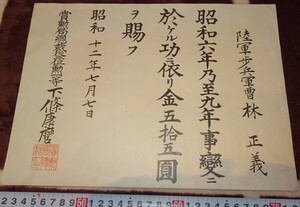 陸軍歩兵軍曹 林 正義
昭和六年乃至九年事変ニ
於ケル功ニ依リ金五拾五圓
ヲ賜フ
昭和十二年七月七日
賞勲局総裁従三位勲一等下條康麿